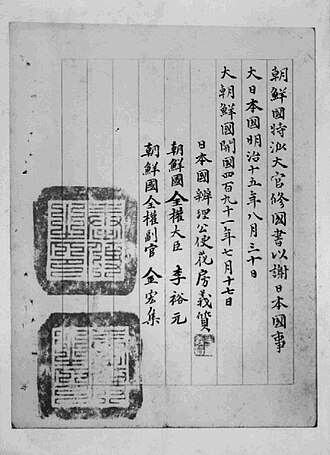 朝鮮國特派大官修國書以謝日本國事
大日本國明治十五年八月三十日
大朝鮮國開國四百九十一年七月十七日
日本國辨理公使花房義質
朝鮮國全權大臣 李裕元
朝鮮國全權副官 金宏集